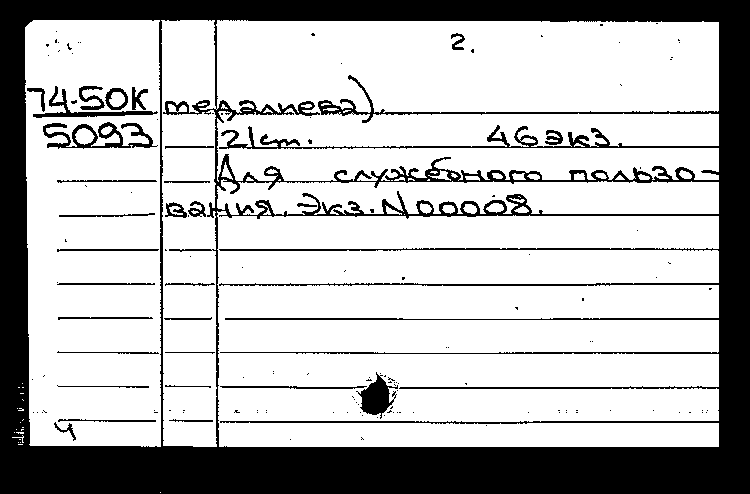 2.
74-50К медалиева).
5093 21см. 46экз.
Для служебного пользо-
вания. Экз. N00008.
ч